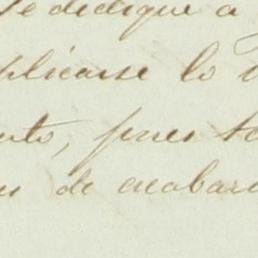 se dedique a
plicarse lo
nto, pues to
de acabar